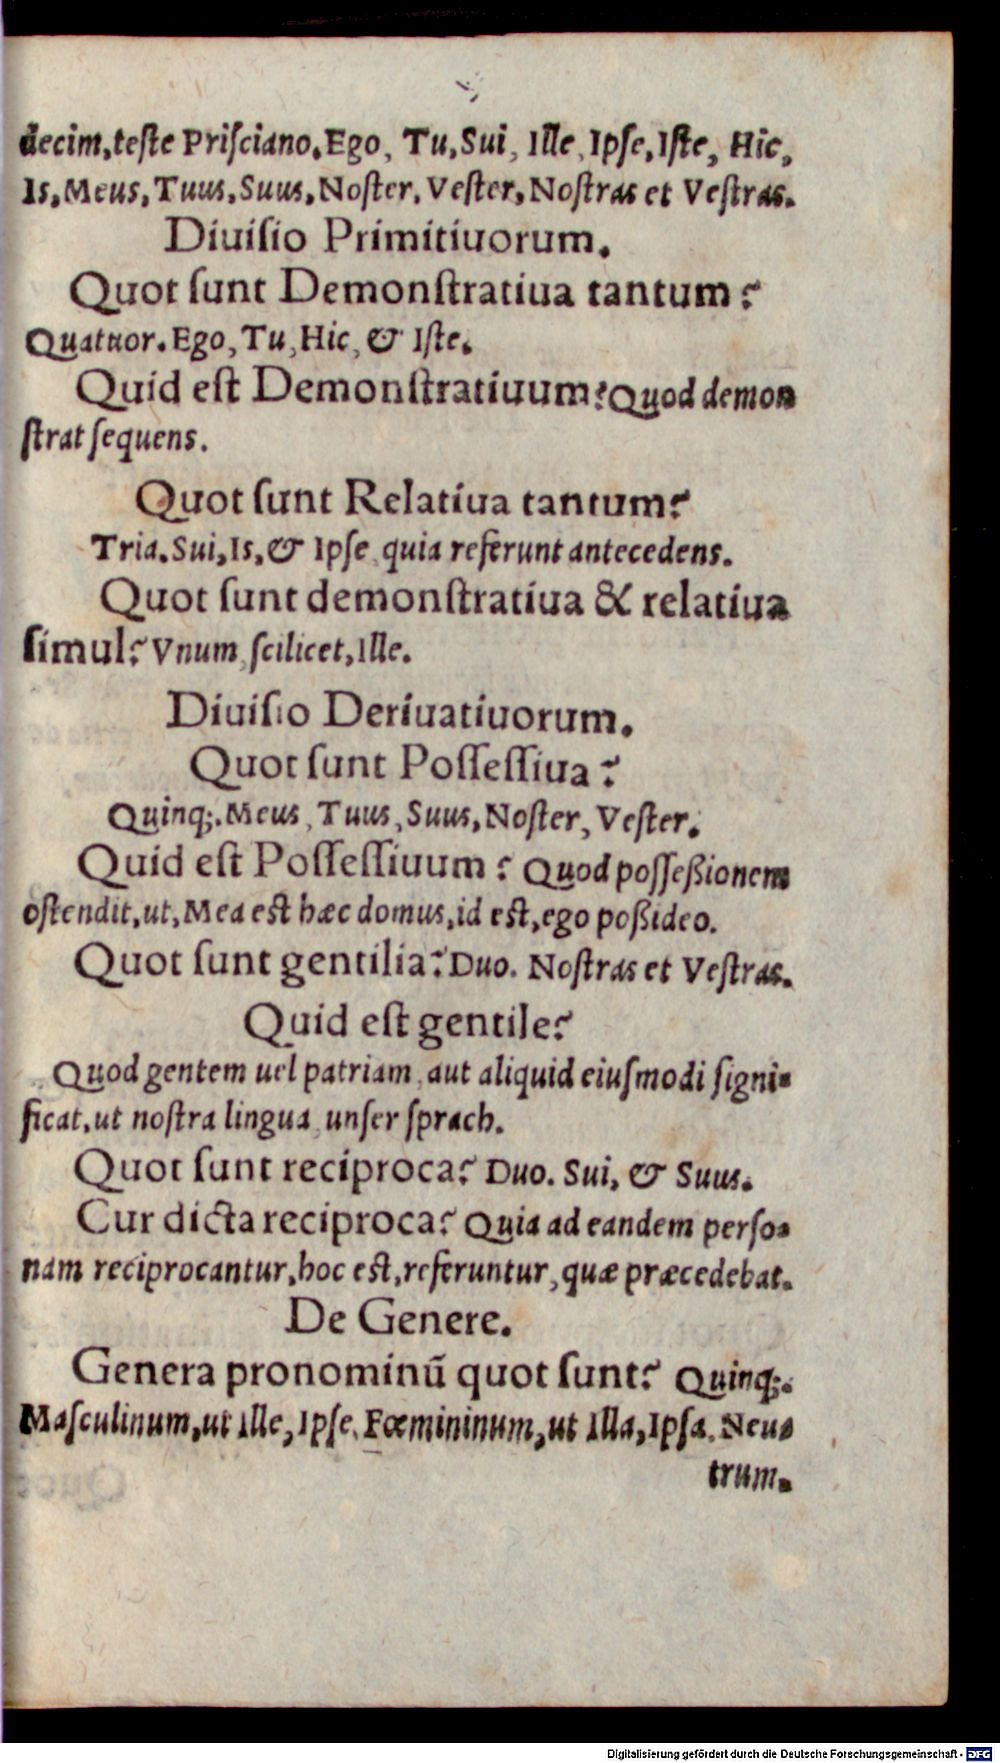 decim, teſte Priſciano. Ego, Tu, Sui, Ille, Ipſe, Iſte, Hic,
Is, Meus, Tuus, Suus, Noſter, Veſter, Noſtras et Veſtras.
Diuiſio Primitiuorum.
Quot ſunt Demonſtratiua tantum?
Quatuor. Ego, Tu, Hic, & Iſte.
Quid eſt Demonſtratiuum? Quod demon
ſtrat ſequens.
Quot ſunt Relatiua tantum?
Tria. Sui, Is, & Ipſe, quia referunt antecedens.
Quot ſunt demonſtratiua & relatiua
ſimul? Vnum, ſcilicet, Ille.
Diuiſio Deriuatiuorum.
Quot ſunt Poſſeſſiua?
Quinq;. Meus, Tuus, Suus, Noſter, Veſter.
Quid eſt Poſſeſſiuum? Quod poſſeßionem
oſtendit, ut, Mea eſt hæc domus, id eſt, ego poßideo.
Quot ſunt gentilia? Duo. Noſtras et Veſtras.
Quid eſt gentile?
Quod gentem uel patriam, aut aliquid eiuſmodi ſigni-
ficat, ut noſtra lingua, unſer ſprach.
Quot ſunt reciproca? Duo. Sui, & Suus.
Cur dicta reciproca? Quia ad eandem perſo-
nam reciprocantur, hoc eſt, referuntur, quæ præcedebat.
De Genere.
Genera pronominū quot ſunt? Quinq;.
Maſculinum, ut Ille, Ipſe. Fœmininum, ut Illa, Ipſa. Neu-
trum.
Digitalisierung gefördert durch die Deutsche Forschungsgemeinschaft - DFG